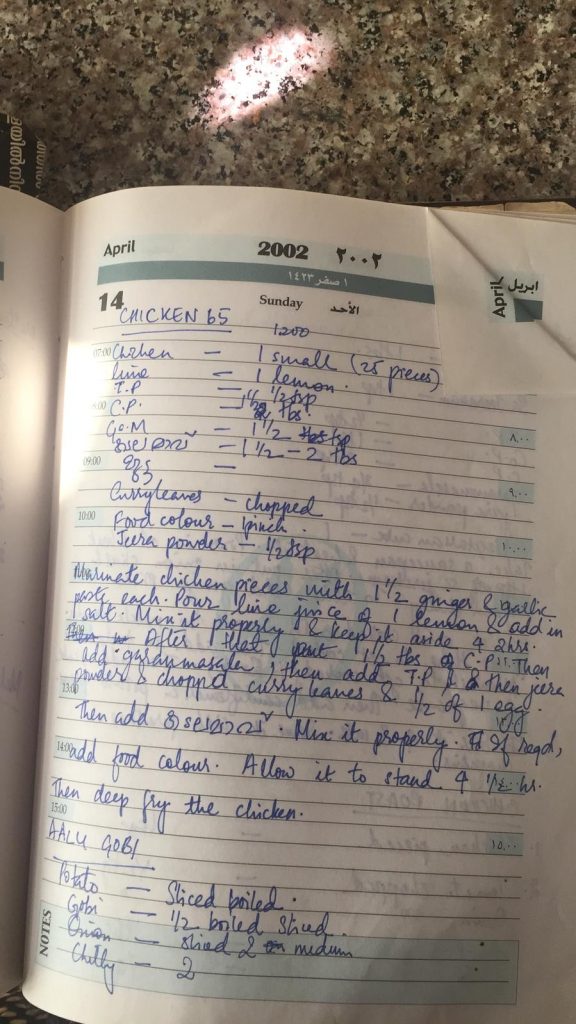 April 2002 ٢٠٠٢
١ صفر ١٤٢٣
ابريل
April
14 Sunday الأحد
CHICKEN 65 1200
07:00 Chicken – 1 small (25 pieces)
lime – 1 lemon.
T.P – 1/2 tsp
8:00 C.P. – tbs
G.M – 1 1/2 tsp
കടലമാവ് – 1 1/2 – 2 tbs
09:00 Egg –
Curryleaves – chopped
10:00 Food colour – pinch.
Jeera powder – 1/2 tsp
Marinate chicken pieces with 1 1/2 ginger & garlic
paste each. Pour lime juice of 1 lemon & add in
salt. Mix it properly & keep it aside 4 2hrs.
After that put 1 1/2 tbs of C.P. Then
add garam masala, then add T.P & then jeera
powder & chopped curry leaves & 1/2 of 1 egg.
13:00 Then add കടലമാവ്. Mix it properly. If reqd,
14:00 add food colour. Allow it to stand 4 hr.
Then deep fry the chicken.
15:00
AALU GOBI
Potato – Sliced boiled.
Gobi – 1/2 boiled sliced.
Onion – sliced 2 medium
Chilly – 2
NOTES
٨,٠٠
٩,٠٠
١٠,٠٠
١٥,٠٠